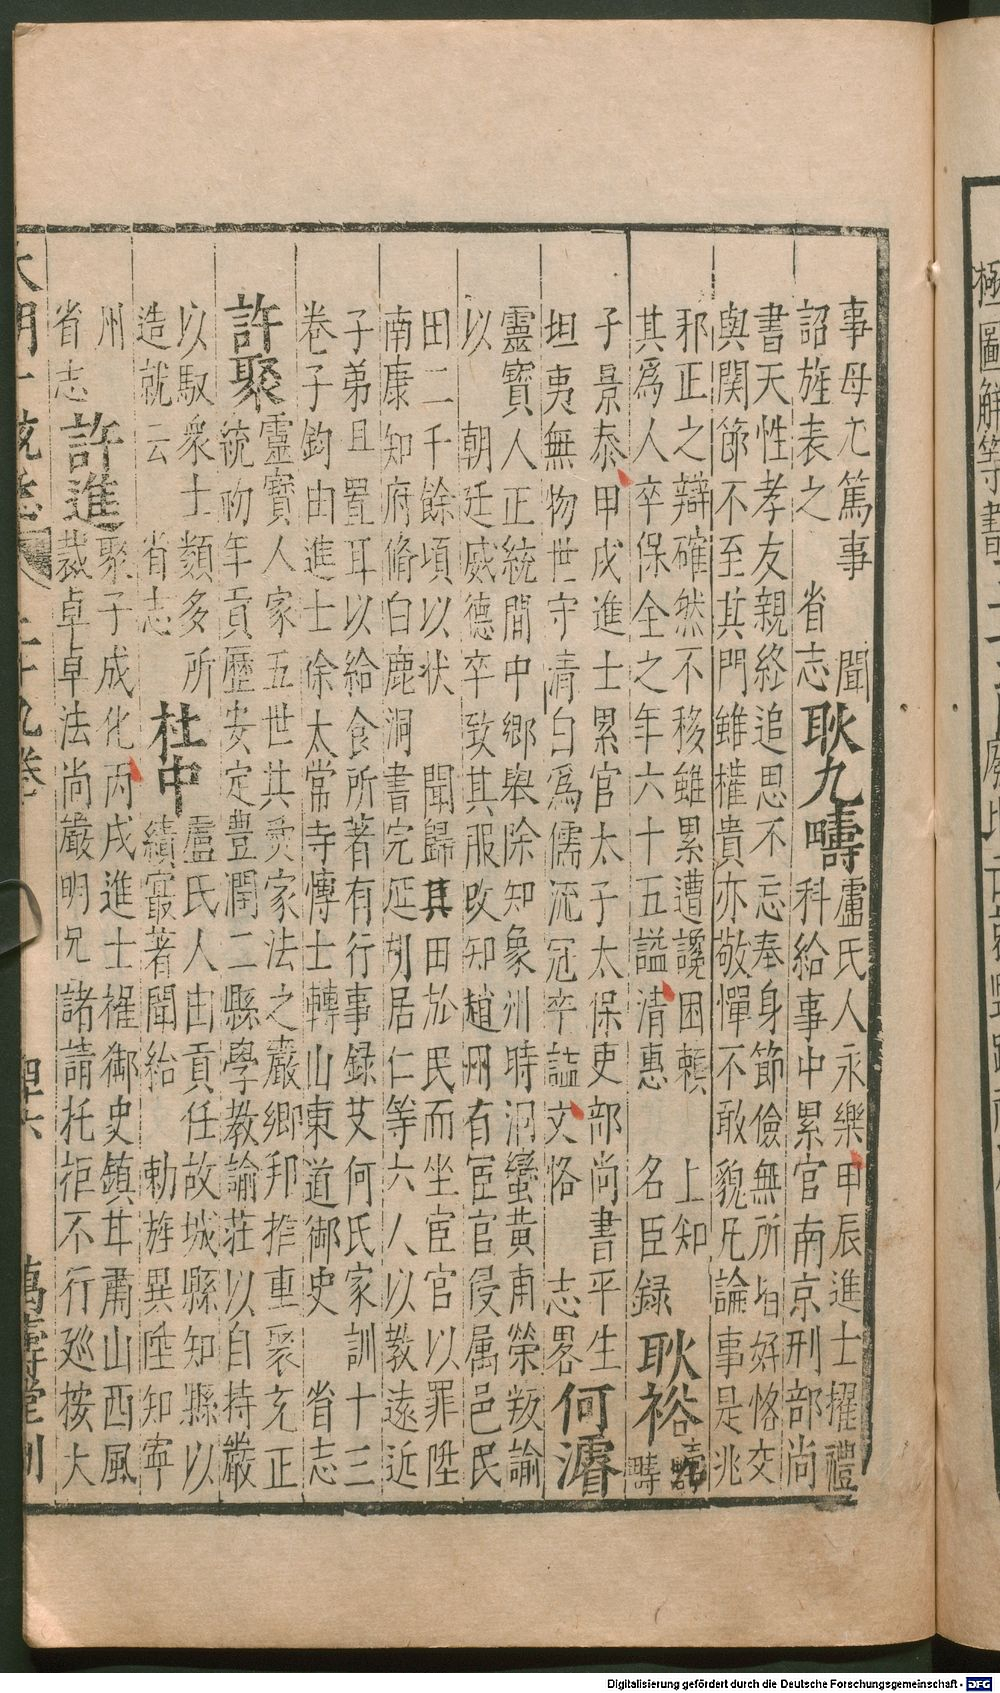 事母尤篤事　聞
詔旌表之　省志
耿九疇
盧氏人永樂甲辰進士擢禮
科給事中累官南京刑部尚
書天性孝友親終追思不忘奉身節儉無所㫖好恪交
與関節不至其門雖權貴亦敬憚不敢貌兄論事是兆
邪正之辯確然不移雖累遭讒困賴　上知
其爲人卒保全之年六十五謚清惠　名臣録
耿裕
疇
子景泰甲戌進士累官太子太保吏部尚書平生
坦夷無物世守清白爲儒流冠卒謚文恪　志畧
何濬
靈寶人正統間中鄉舉除知象州時洞蠻黃甫榮叛諭
以　朝廷威德卒致其服改知趙州有宦官侵属邑民
田二千餘頃以狀　聞歸其田於民而坐宦官以罪陞
南康知府脩白鹿洞書完延胡居仁等六人以教遠近
子弟且置耳以給食所著有行事録艾何氏家訓十三
卷子鈞由進士徐太常寺愽士轉山東道御史　省志
許聚
靈寶人家五世共㸑家法之嚴鄉邦推重聚充正
統初年貢歷安定豊潤二縣學教諭莊以自持嚴
以馭衆士類多所
造就云　省志
杜中
盧氏人由貢任故城縣知縣以
績㝡著聞給　勅旌異陞知寧
州
省志
許進
聚子成化丙戌進士擢御史鎮甘肅山西風
裁卓卓法尚嚴明兄諸請托拒不行廵按大
大明一統志　二十九卷　四十六　萬壽堂刊
Digitalisierung gefördert durch die Deutsche Forschungsgemeinschaft - DFG